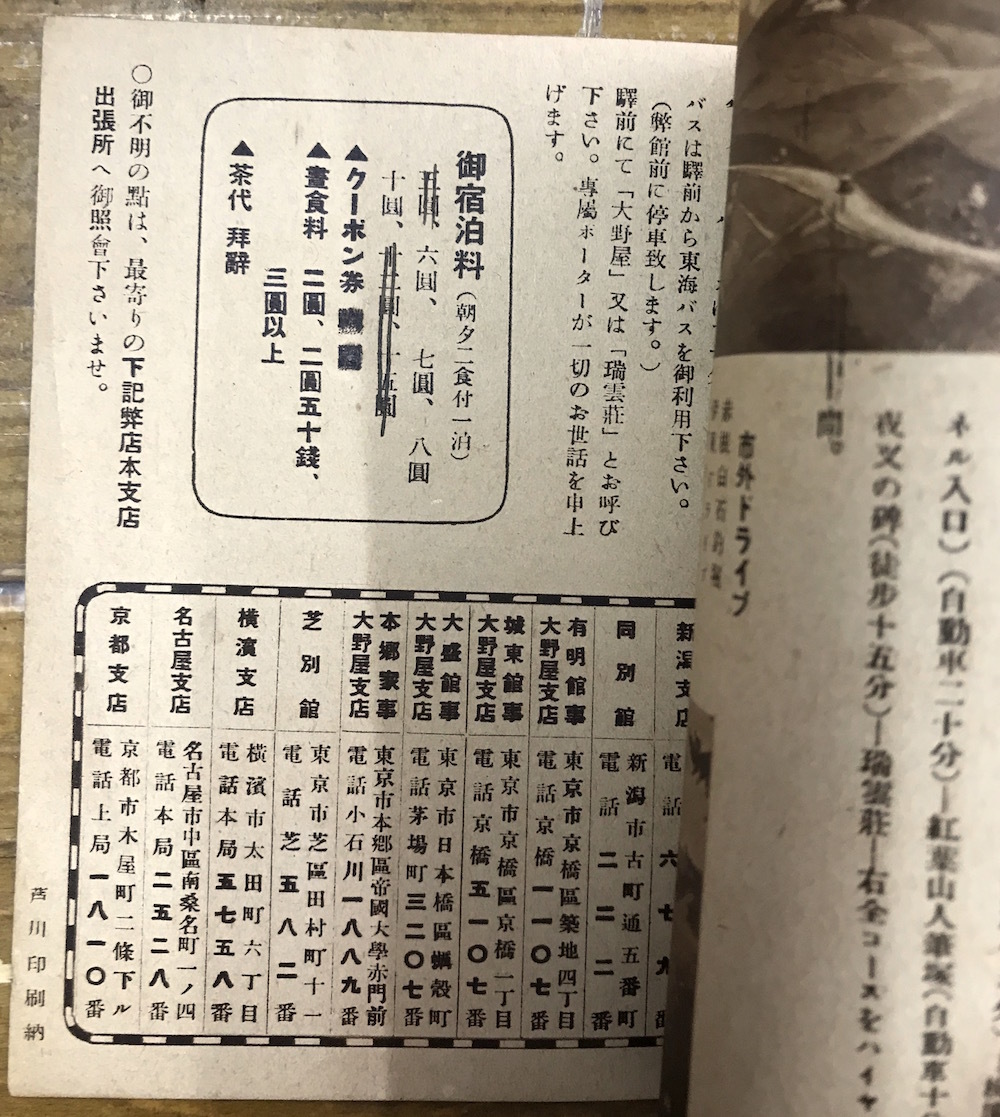 ネル入口)(自動車二十分)―紅葉山人筆塚(自動車十
夜叉の碑(徒歩十五分)―瑞雲荘―右全コースをハイヤ
間。
市外ドライブ
バスは驛前から東海バスを御利用下さい。
(弊館前に停車致します。)
驛前にて「大野屋」又は「瑞雲莊」とお呼び
下さい。專屬ポーターが一切のお世話を申上
げます。
御宿泊料(朝夕二食付一泊)
五圓、六圓、七圓、八圓
十圓、十二圓、十五圓
▲クーポン券
▲晝食料 二圓、二圓五十錢、
三圓以上
▲茶代 拜辭
○御不明の點は、最寄りの下記弊店本支店
出張所へ御照會下さいませ。
新潟支店
電話 六七九
同別館
新潟市古町通五番町
電話 二二二番
有明館事
大野屋支店
東京市京橋區築地四丁目
電話京橋一一〇七番
城東館事
大野屋支店
東京市京橋區京橋一丁目
電話京橋五一〇七番
大盛館事
大野屋支店
東京市日本橋區蠣殻町
電話茅場町三二〇七番
本郷家事
大野屋支店
東京市本郷區帝國大學赤門前
電話小石川一八八九番
芝別館
東京市芝區田村町十一
電話芝五八二番
橫濱支店
橫濱市太田町六丁目
電話本局五七五八番
名古屋支店
名古屋市中區南桑名町一ノ四
電話本局二五二八番
京都支店
京都市木屋町二條下ル
電話上局一八一〇番
芦川印刷納